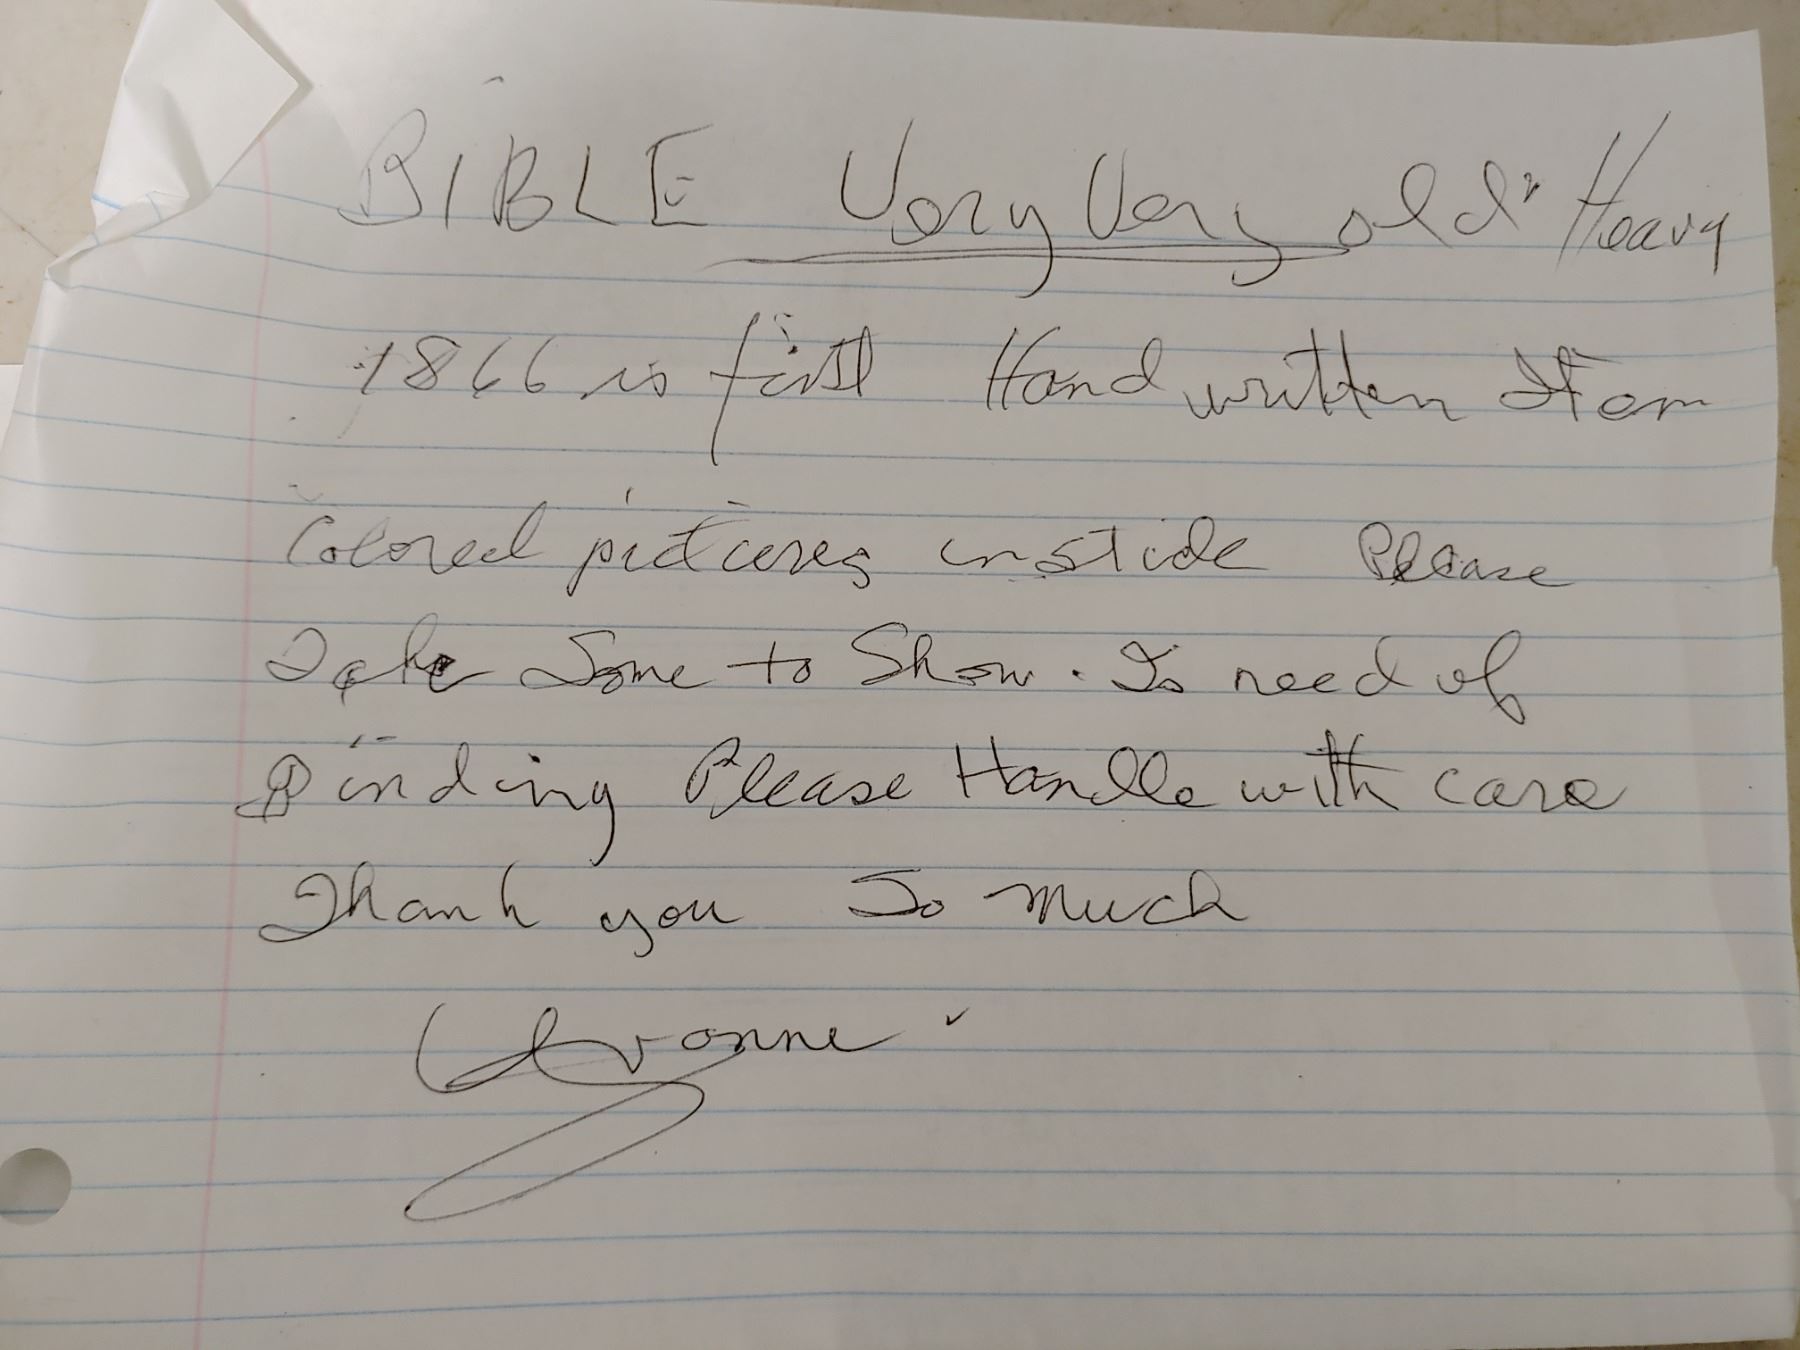 BIBLE Very Very old Heavy
1866 is first Hand written Item
Colored pictures instide Please
Take Some to Show. Is need of
Binding Please Handle with care
Thank you So Much
Yvonne